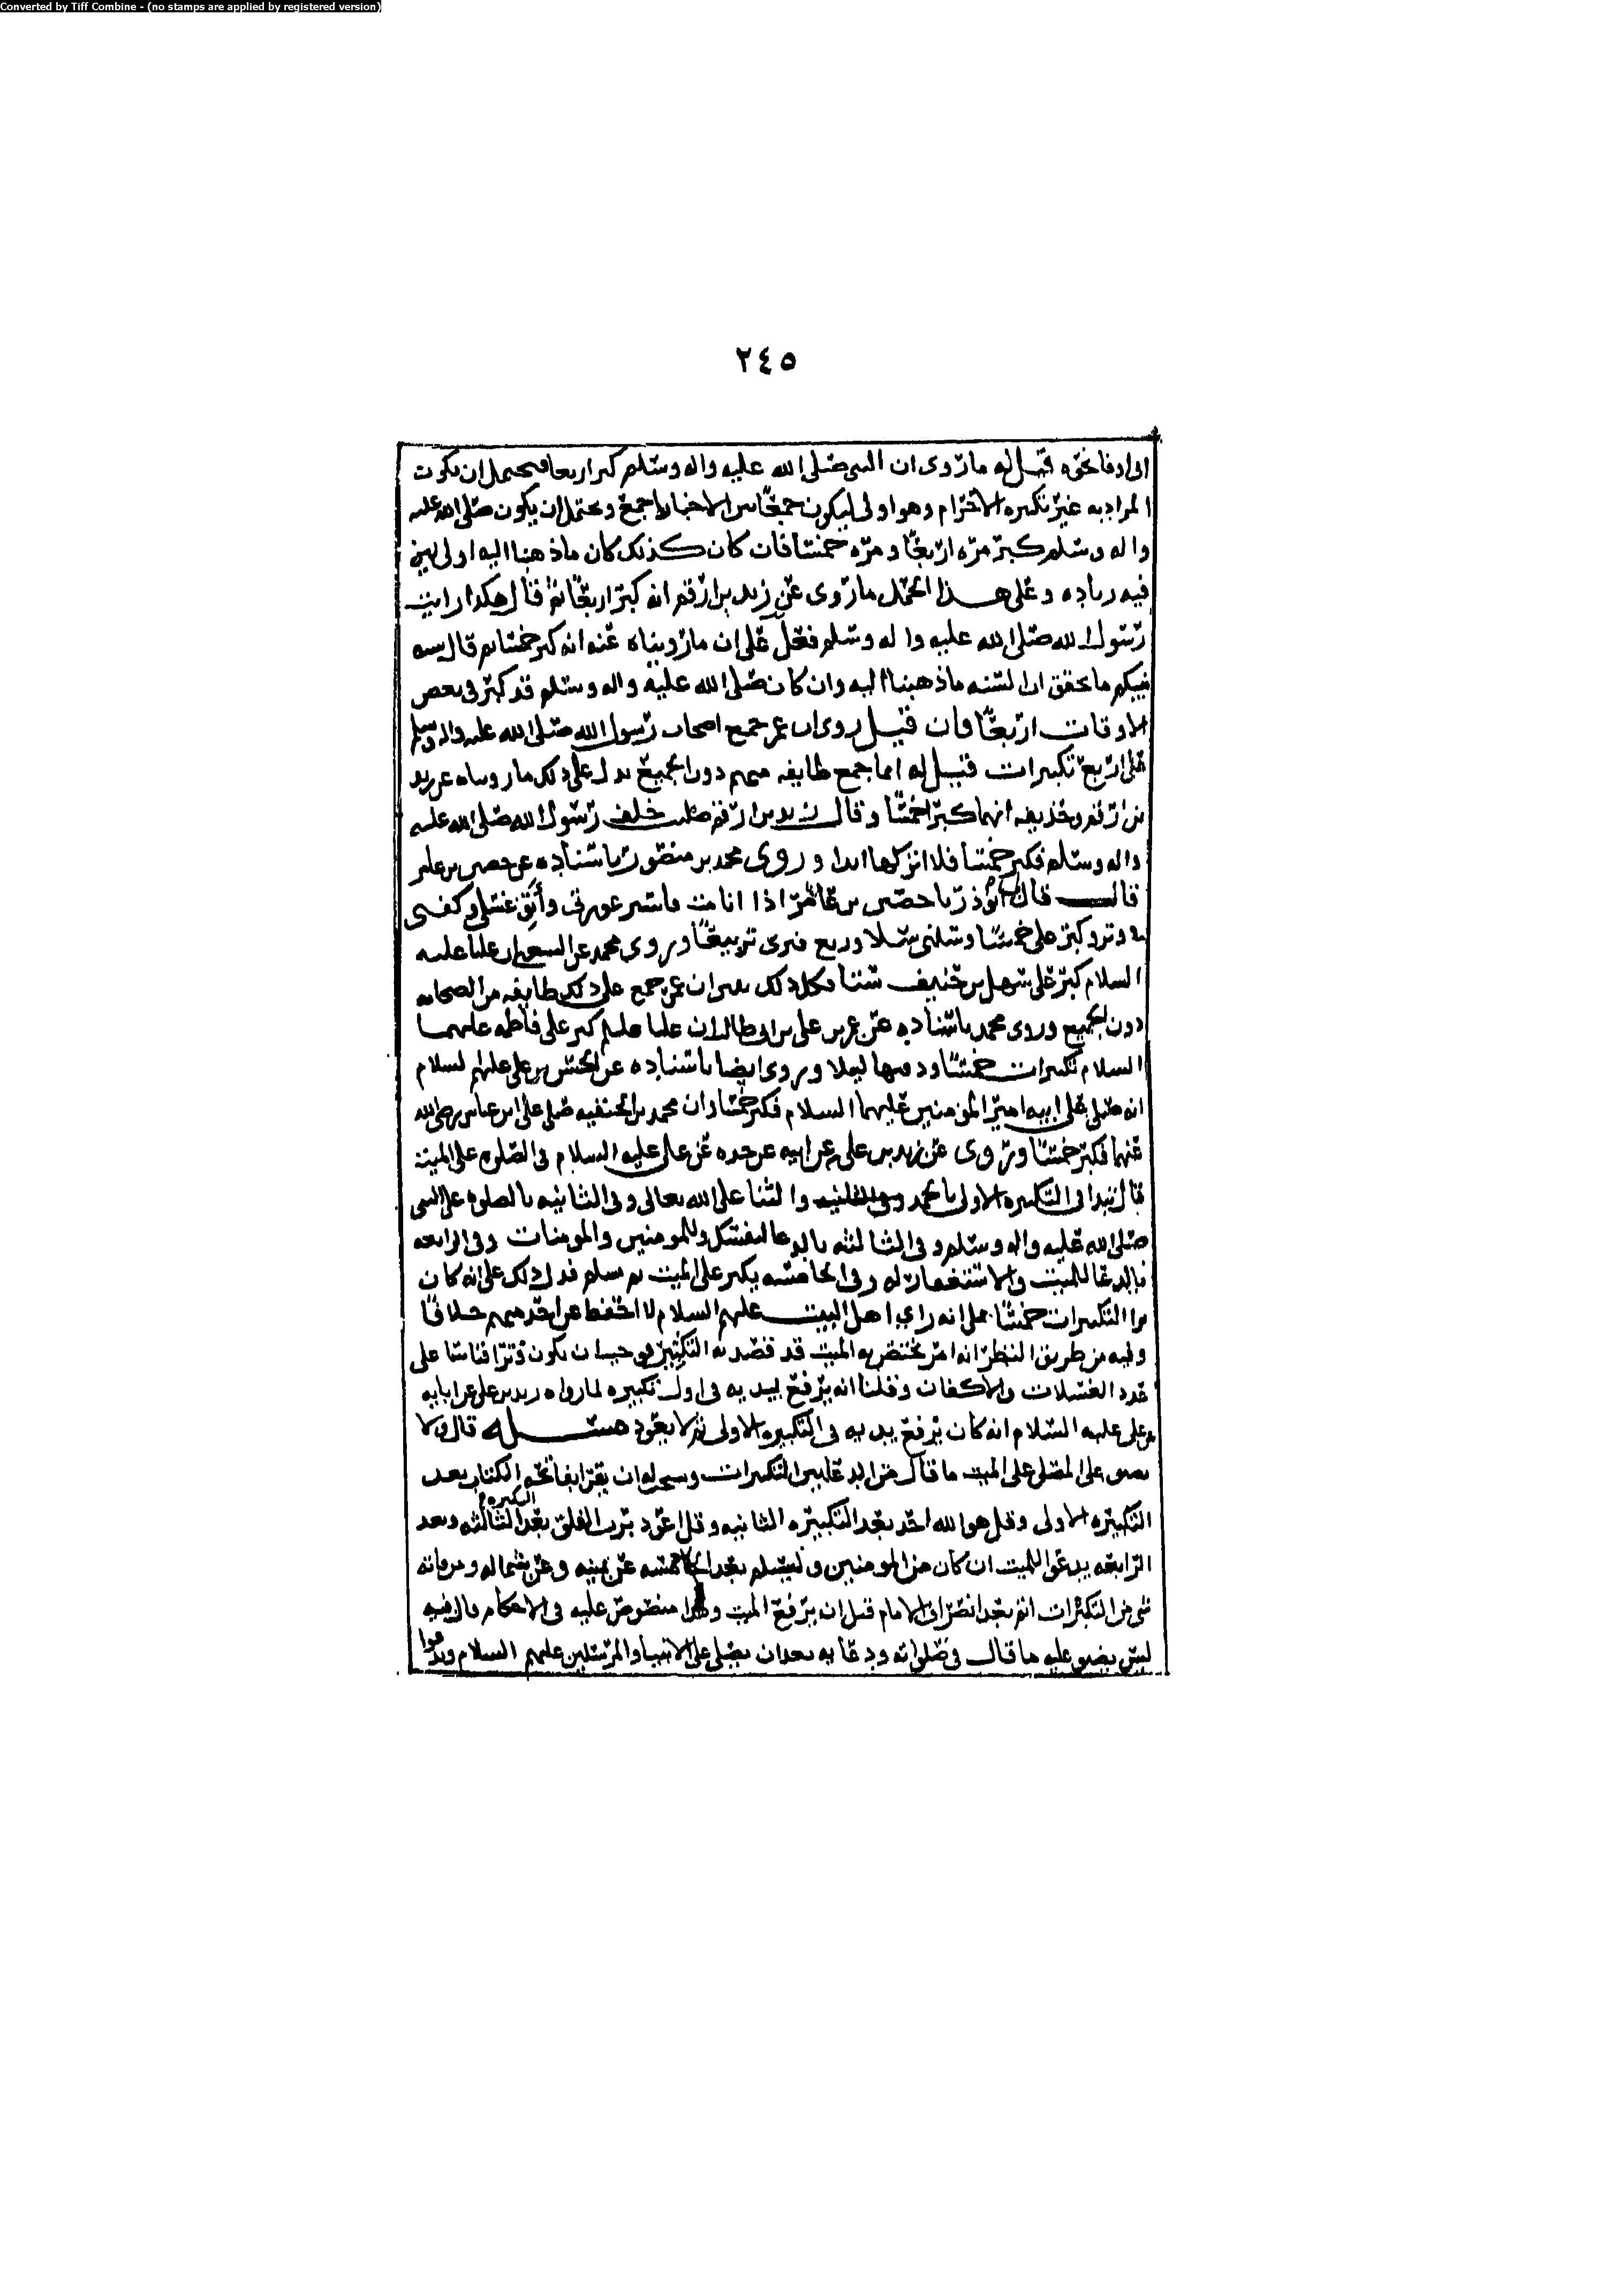 Converted by Tiff Combine - (no stamps are applied by registered version)
٢٤٥
قيل له ما روى ان النبى صلى الله عليه واله وسلم كبر اربعا فيحتمل ان يكون
المراد به غير تكبيره الاحرام وهو اولى ليكون جمعا بين الاخبار اجمع ويحتمل ان يكون صلى الله عليه
واله وسلم كبر مره اربعا ومره خمسا فان كان كذلك كان ما ذهبنا اليه اولى لان
فيه زياده وعلى هذا يحمل ما روى عن زيد بن ارقم انه كبر اربعا ثم قال هكذا رايت
رسول الله صلى الله عليه واله وسلم فعل على ان ما رويناه عنه انه كبر خمسا ثم قال سنه
نبيكم ما يحقق ان السنه ما ذهبنا اليه وان كان صلى الله عليه واله وسلم قد كبر فى بعض
الاوقات اربعا فان قيل روى ان عمر جمع اصحاب رسول الله صلى الله عليه واله وسلم
على اربع تكبيرات قيل له انما جمع طايفه منهم دون الجميع يدل على ذلك ما رويناه عن زيد
بن ارقم وحذيفه انهما كبرا خمسا وقال زيد بن ارقم صليت خلف رسول الله صلى الله عليه
واله وسلم فكبر خمسا فلا اتركها ابدا وروى محمد بن منصور باسناده عن
قال قال ابو ذر يا اذا انا مت فاستر عورتى وأنق غسلى وكفنى
فى وتر وكبر على خمسا وسلنى سلا وربع قبرى تربيعا وروى محمد عن الشعبى ان عليا عليه
السلام كبر على سهل بن حنيف ستا فكل ذلك يبين ان عمر جمع على ذلك طايفه من الصحابه
دون الجميع وروى محمد باسناده عن عمر بن على بن ابى طالب ان عليا عليلم كبر على فاطمه عليهما
السلام تكبيرات خمسا ودفنها ليلا وروى ايضا باسناده عن الحسن بن على عليهم السلام
انه صلى على ابيه امير المؤمنين عليهما السلام فكبر خمسا وان محمد بن الحنفيه صلى على ابن عباس رضى الله
عنهما فكبر خمسا وروى عن زيد بن على عن ابيه عن جده عن على عليه السلام فى الصلوه على الميت
قال تبدا فى التكبيره الاولى بالحمد والثنا على الله تعالى وفى الثانيه بالصلوه على النبى
صلى الله عليه واله وسلم وفى الثالثه بالدعا لنفسك وللمومنين والمومنات وفى الرابعه
بالدعا للميت والاستغفار له وفى الخامسه يكبر على الميت ثم يسلم فدل ذلك على انه كان
يرا التكبيرات خمسا على انه راى اهل البيت عليهم السلام لا احفظ عن احد منهم خلافا
وفيه من طريق النظر انه امر يختص به الميت قد قصد به التكثير فوجب ان يكون وترا قياسا على
عدد الغسلات والاكفان وقلنا انه يرفع يديه فى اول تكبيره لما رواه زيد بن على عن ابايه
عن على عليه السلام انه كان يرفع يديه فى التكبيره الاولى ثم لا يعود مسئله قال ولا
يضيق على المصلى على الميت ما قال من الدعا بين التكبيرات ويستحب له ان يقرا بفاتحه الكتاب بعد
التكبيره الاولى وقل هو الله احد بعد التكبيره الثانيه وقل اعوذ برب الفلق بعد التكبيره الثالثه وبعد
الرابعه يدعوا للميت ان كان من المومنين وليسلم بعد الخامسه عن يمينه وعن شماله ومن فاته
شى من التكبيرات اتم بعد انصراف الامام قبل ان يرفع الميت وهذا منصوص عليه فى الاحكام قال فيه
ليس يضيق عليه ما قال فى صلواته ودعا به بعد ان يصلى على الانبيا والمرسلين عليهم السلام ويدعوا